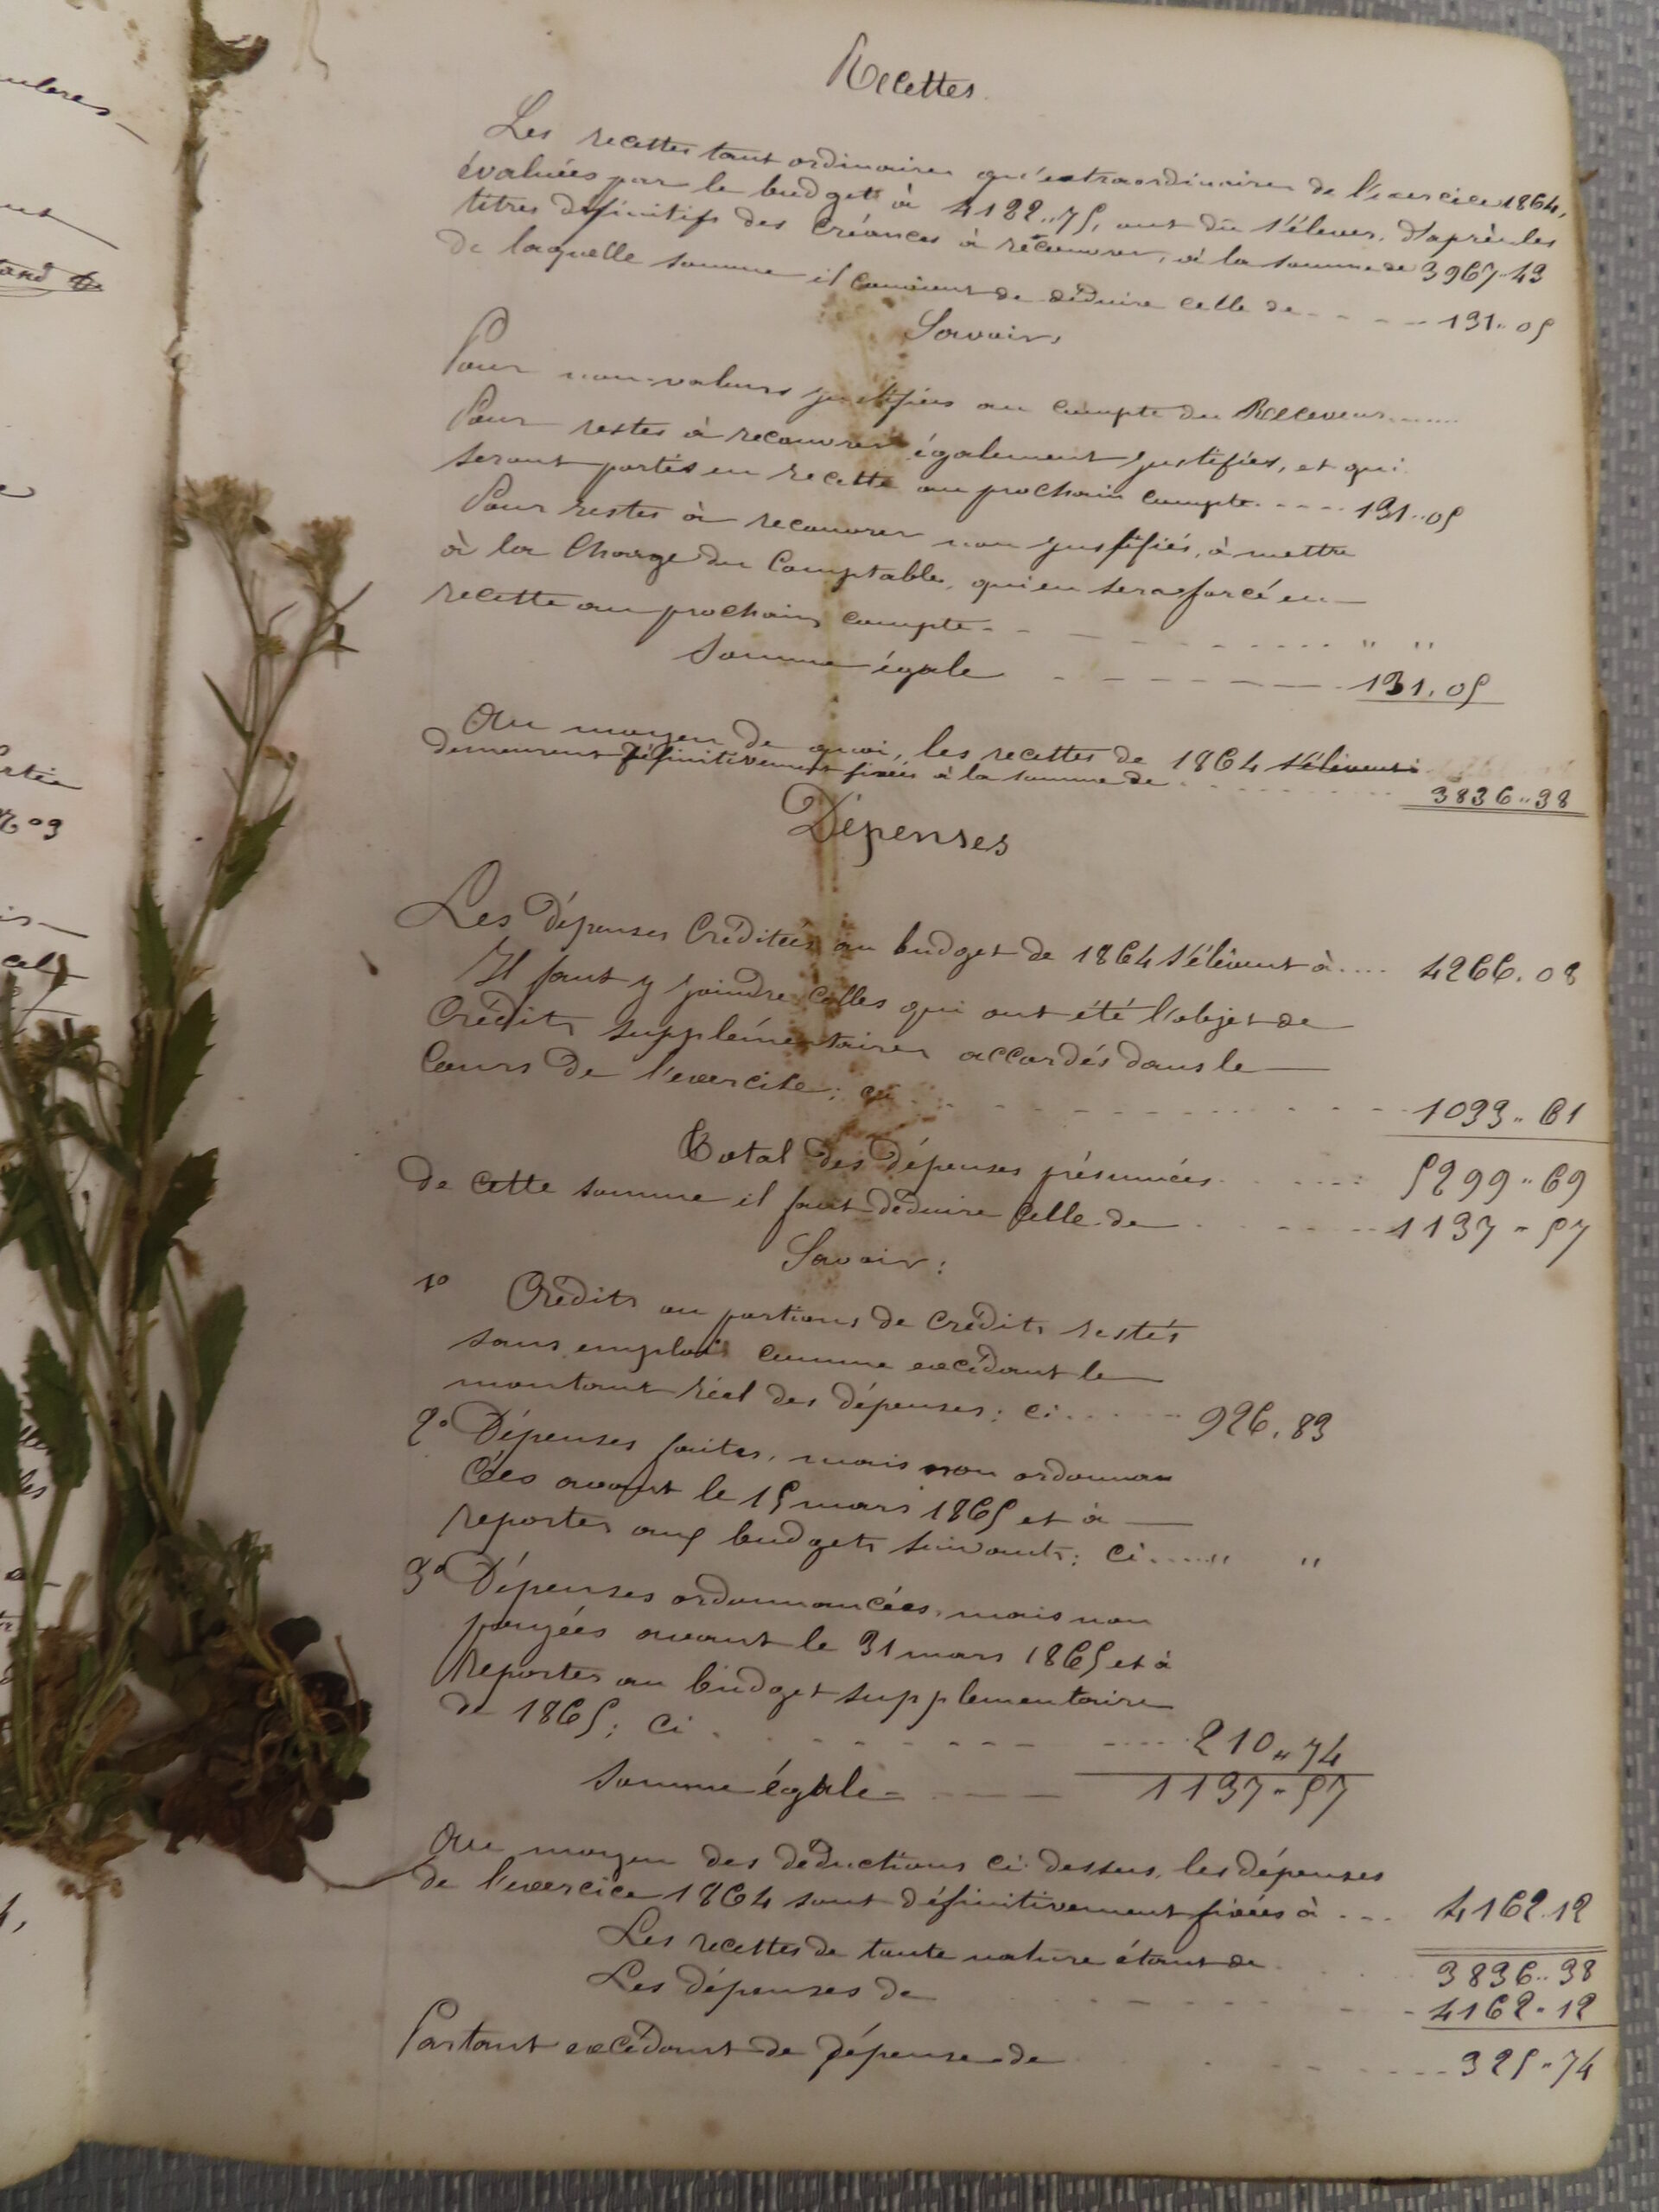 Recettes
Les recettes tant ordinaires qu'extraordinaires de l'exercice 1864,
évaluées par le budget à 4122,,75, ont dû s'élever, d'après les
titres définitifs des créances à récouvrer, à la somme de 3967,,43
de laquelle somme il convient de déduire celle de - - - - - 131,,05
Savoir,
Pour non-valeurs justifiées au compte du Receveur........
Pour restes à recouvrer également justifiés, et qui
seront portés en recette au prochain compte. - - - - 131..05
Pour restes à recouvrer non justifiés, à mettre
à la Charge du Comptable, qui en sera forcé en
recette au prochain compte - - - - - - - " "
Somme égale - - - - - - 131,05
Au moyen de quoi, les recettes de 1864 s'élèvent
demeurent définitivement fixées à la somme de - - - - - 3836,,38
Dépenses
Les Dépenses Créditées au budget de 1864 s'élèvent à .... 4266.08
Il faut y joindre Celles qui ont été l'objet de
Crédits supplémentaires accordés dans le
Cours de l'exercice; ci - - - - - - - 1033,,61
Total des dépenses présumées. - - - - - 5299,,69
de cette somme il faut déduire Celle de - - - - 1137,,57
Savoir:
1° Crédits ou portions de Crédits restés
sans emploi comme excédant le
montant réel des dépenses: ci..... 926,83
2° Dépenses faites, mais non ordonnan
cées avant le 15 mars 1865 et à
reporter aux budgets suivants: ci....." "
3° Dépenses ordonnancées, mais non
payées avant le 31 mars 1865 et à
Reporter au budget supplementaire
de 1865; ci - - - - - - - 210,,74
Somme égale - - - - 1137,,57
Au moyen des déductions ci-dessus, les dépenses
de l'exercice 1864 sont définitivement fixées à - - - 4162.12
Les recettes de toute nature étant de - - - 3836..38
Les dépenses de - - - - - - - 4162,,12
Partant excédant de dépense de - - - - - - 325,,74